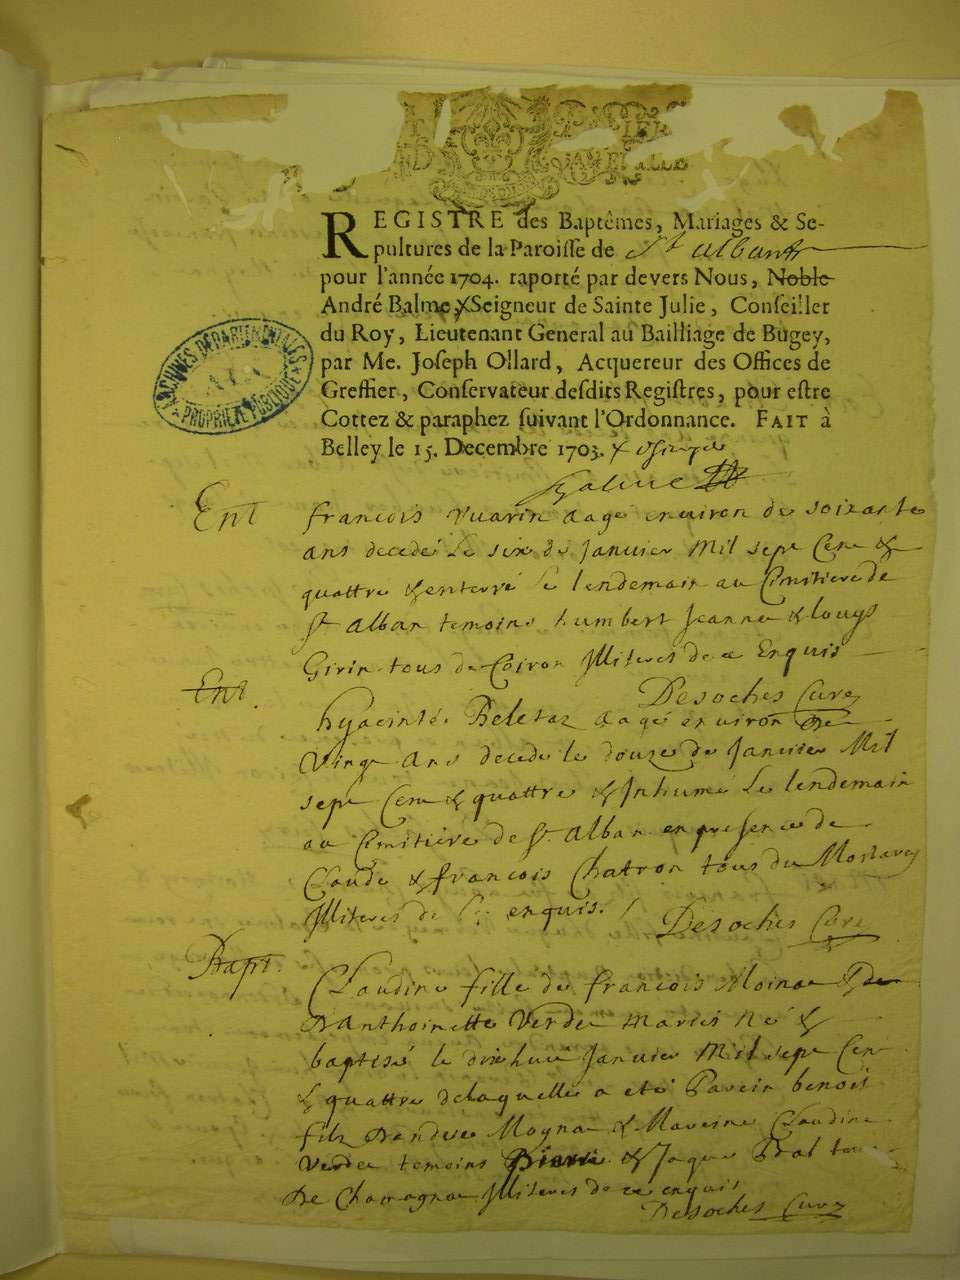 REGISTRE des Baptêmes, Mariages & Se-
pultures de la Paroisse de St alban
pour l'année 1704. raporté par devers Nous, Noble
André Balme, x Seigneur de Sainte Julie, Conseiller
du Roy, Lieutenant General au Bailliage de Bugey,
par Me. Joseph Ollard, Acquereur des Offices de
Greffier, Conservateur desdits Registres, pour estre
Cottez & paraphez suivant l'Ordonnance. FAIT à
Belley le 15. Decembre 1703. x
Balme
ARCHIVES DÉPARTEMENTALES
AIN
PROPRIÉTÉ PUBLIQUE
Ent
francois vuarin aagé environ de soixante
ans decedé Le six de Janvier Mil sept Cent &
quattre & enterré Le lendemain au Cimitiere de
St alban temoins humbert Jeanne & Louys
Girin tous de Coiron Illiteres de ce Enquis
Desoches Curé
Ent.
hyacinte Beletaz aagé environ de
Vingt Ans decede le douze de Janvier Mil
sept Cent & quattre & Inhumé Le lendemain
au Cimitiere de St Alban en presence de
Claude & francois Chatron tous du
Illiteres de ce enquis.
Desoches Curé
Bapt.
Claudine fille de francois Moina & de
D'anthoinette Verdet Mariés Né &
baptisé le dix huit Janvier Mil sept Cent
& quattre delaquelle a eté Parein benoit
filz D'andre Moyna & Mareine Claudine
Verdet temoins Pierre & Jaque tous
De Illiteres de ce enquis
Desoches Curé